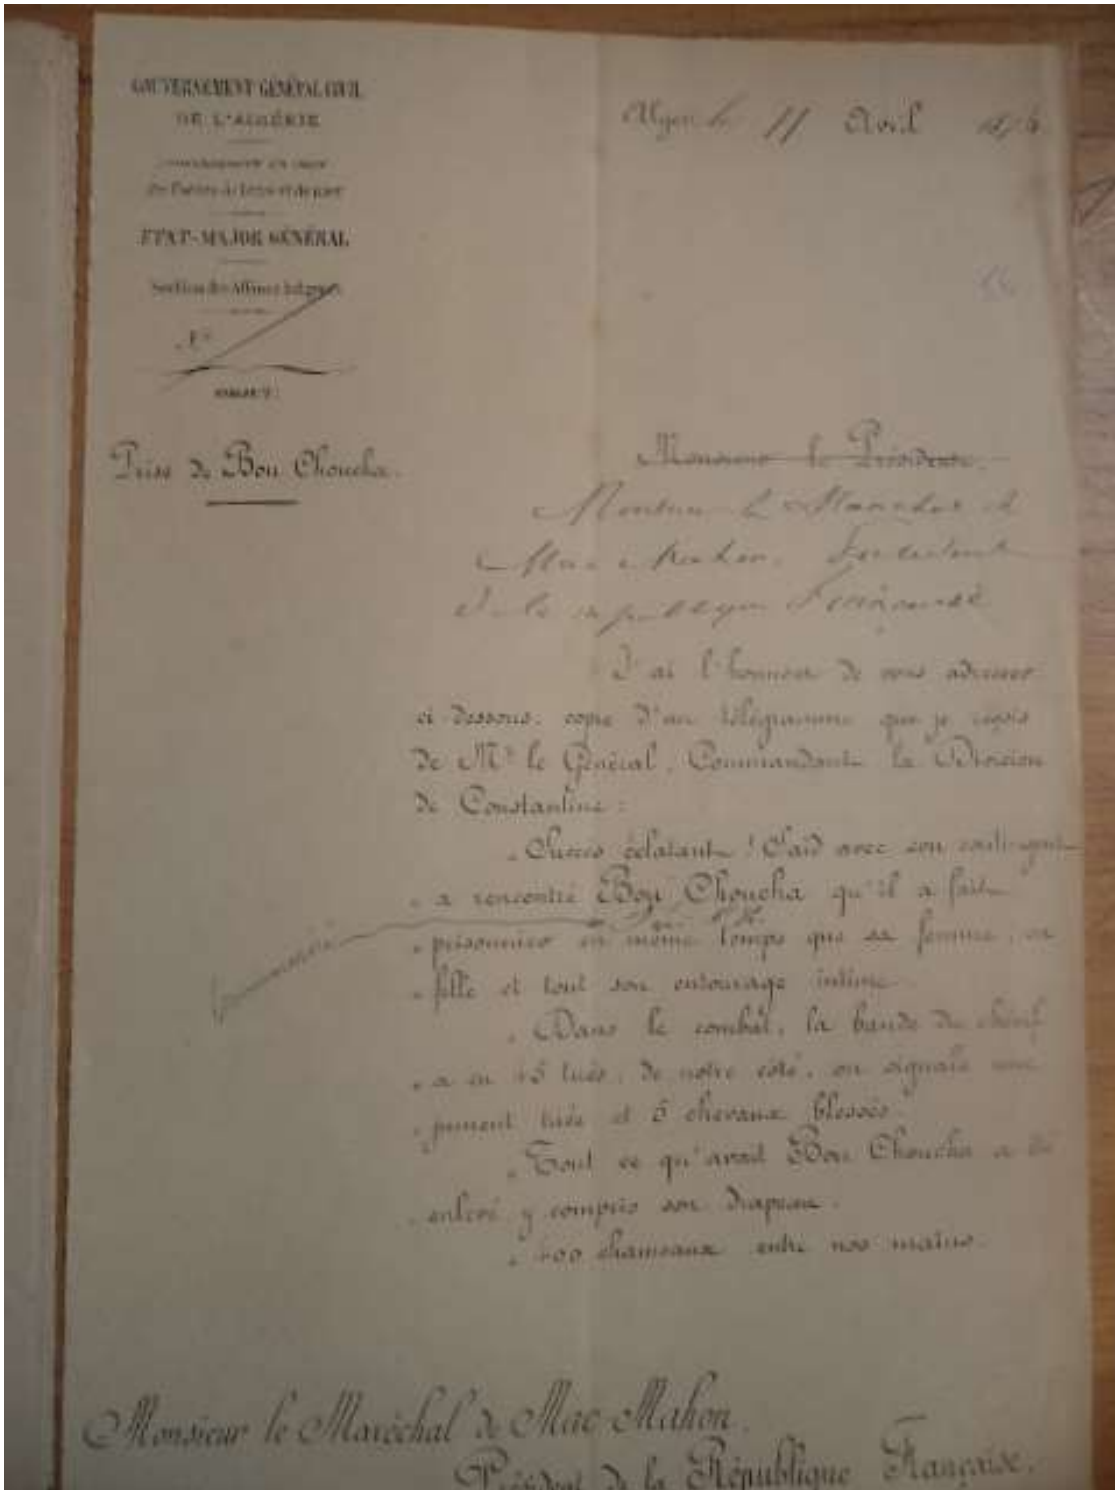 GOUVERNEMENT GÉNÉRAL CIVIL
DE L'ALGÉRIE
Alger, le 11 Avril 187
des Forces de terre et de mer
ÉTAT-MAJOR GÉNÉRAL
Section des Affaires Indigènes
N°
OBJET :
Prise de Bou Choucha.
Monsieur le Président.
Monsieur le Maréchal de
Mac Mahon, Président
de la république Française
J'ai l'honneur de vous adresser
ci dessous, copie d'un télégramme que je reçois
de Mr le Général, Commandant la Division
de Constantine :
" Succès éclatant ! Saïd avec son contingent
" a rencontré Bou Choucha qu'il a fait
" prisonnier en même temps que sa femme, sa
" fille et tout son entourage intime.
" Dans le combat, la bande du chérif
" a eu tués, de notre côté, on signale une
" jument tuée et 6 chevaux blessés.
" Tout ce qu'avait Bou Choucha a été
" enlevé y compris son drapeau.
" chameaux entre nos mains.
Monsieur le Maréchal de Mac Mahon.
Président de la République Française.